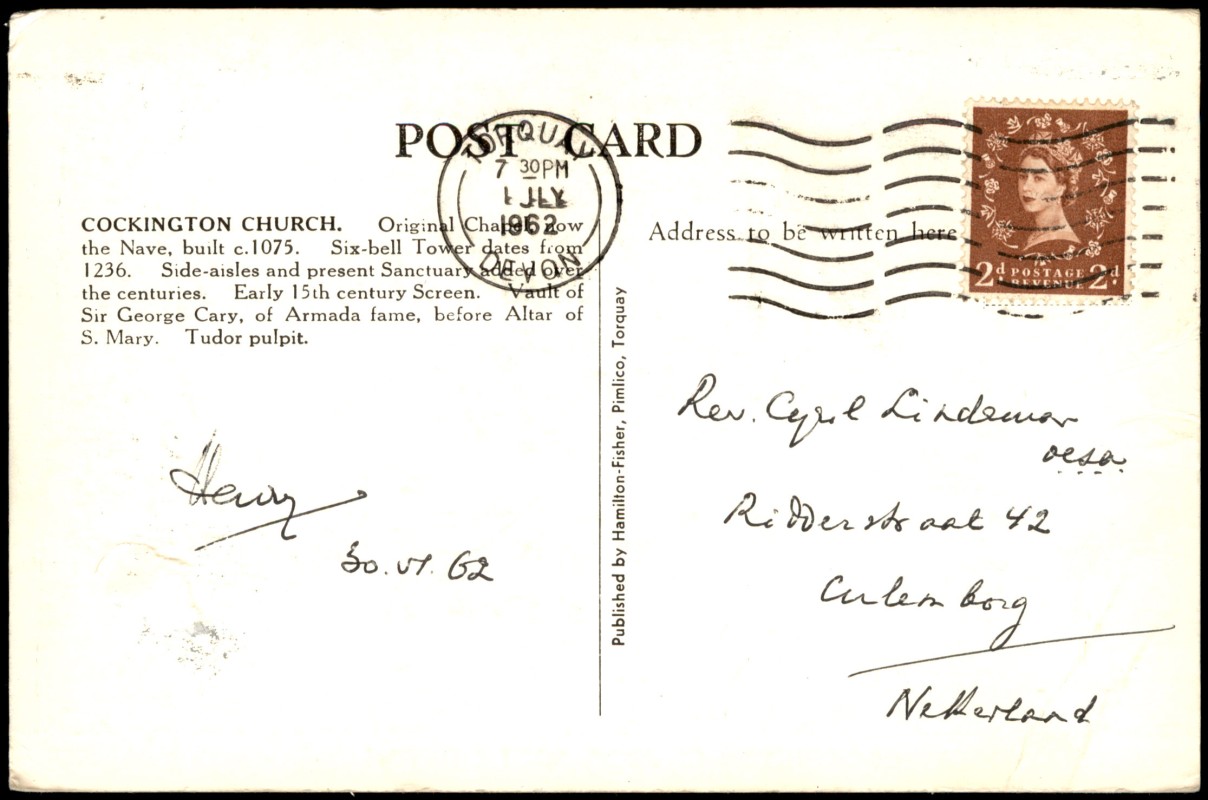 POST CARD
TORQUAY
7 30PM
1 JLY
1962
DEVON
COCKINGTON CHURCH. Original Chapel, now
the Nave, built c.1075. Six-bell Tower dates from
1236. Side-aisles and present Sanctuary added over
the centuries. Early 15th century Screen. Vault of
Sir George Cary, of Armada fame, before Altar of
S. Mary. Tudor pulpit.
Henry
30.VI.62
Published by Hamilton-Fisher, Pimlico, Torquay
Address to be written here
2d POSTAGE 2d
REVENUE
Rev. Cyril Lindeman
oesa
Ridderstraat 42
Culemborg
Netherland